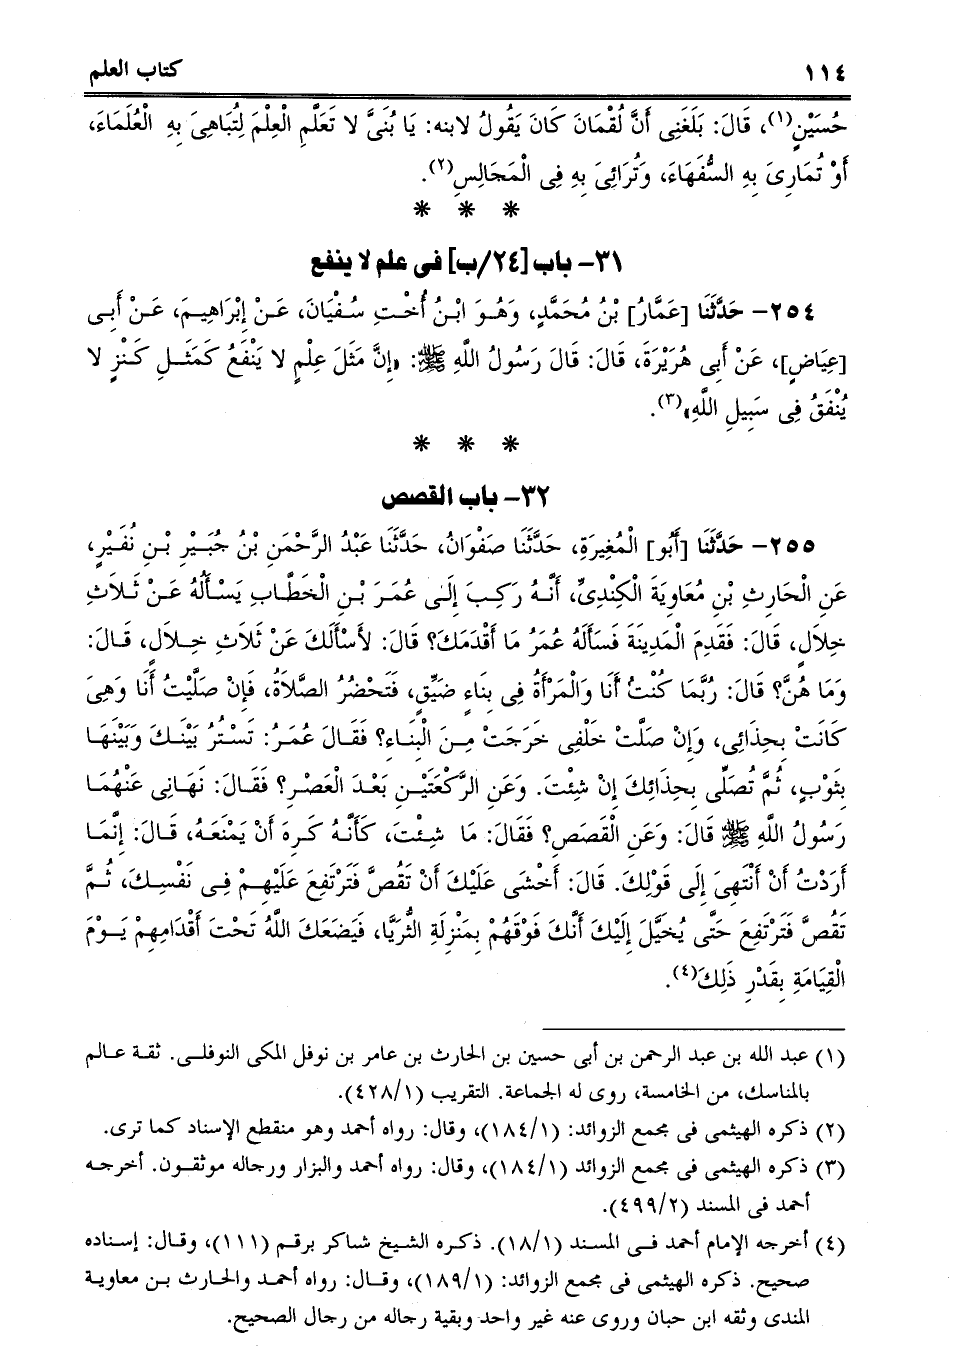 ١١٤
كتاب العلم
حُسَيْنٍ(١)، قَالَ: بَلَغَنِى أَنَّ لُقْمَانَ كَانَ يَقُولُ لابنه: يَا بُنَىَّ لا تَعَلَّمِ الْعِلْمَ لِتُبَاهِىَ بِهِ الْعُلَمَاءَ،
أَوْ تُمَارِىَ بِهِ السُّفَهَاءَ، وَتُرَائِىَ بِهِ فِى الْمَجَالِسِ(٢).
* * *
٣١- باب [٢٤/ب] فى علم لا ينفع
٢٥٤- حَدَّثَنَا [عَمَّارُ] بْنُ مُحَمَّدٍ، وَهُوَ ابْنُ أُخْتِ سُفْيَانَ، عَنْ إِبْرَاهِيمَ، عَنْ أَبِى
[عِيَاضٍ]، عَنْ أَبِى هُرَيْرَةَ، قَالَ: قَالَ رَسُولُ اللَّهِ ﷺ: «إِنَّ مَثَلَ عِلْمٍ لا يَنْفَعُ كَمَثَلِ كَنْزٍ لا
يُنْفَقُ فِى سَبِيلِ اللَّهِ»(٣).
* * *
٣٢- باب القصص
٢٥٥- حَدَّثَنَا [أَبُو] الْمُغِيرَةِ، حَدَّثَنَا صَفْوَانُ، حَدَّثَنَا عَبْدُ الرَّحْمَنِ بْنُ جُبَيْرِ بْنِ نُفَيْرٍ،
عَنِ الْحَارِثِ بْنِ مُعَاوِيَةَ الْكِنْدِىِّ، أَنَّهُ رَكِبَ إِلَى عُمَرَ بْنِ الْخَطَّابِ يَسْأَلُهُ عَنْ ثَلاثِ
خِلالٍ، قَالَ: فَقَدِمَ الْمَدِينَةَ فَسَأَلَهُ عُمَرُ مَا أَقْدَمَكَ؟ قَالَ: لأَسْأَلَكَ عَنْ ثَلاثِ خِلالٍ، قَالَ:
وَمَا هُنَّ؟ قَالَ: رُبَّمَا كُنْتُ أَنَا وَالْمَرْأَةُ فِى بِنَاءٍ ضَيِّقٍ، فَتَحْضُرُ الصَّلاةُ، فَإِنْ صَلَّيْتُ أَنَا وَهِىَ
كَانَتْ بِحِذَائِى، وَإِنْ صَلَّتْ خَلْفِى خَرَجَتْ مِنَ الْبِنَاءِ؟ فَقَالَ عُمَرُ: تَسْتُرُ بَيْنَكَ وَبَيْنَهَا
بِثَوْبٍ، ثُمَّ تُصَلِّى بِحِذَائِكَ إِنْ شِئْتَ. وَعَنِ الرَّكْعَتَيْنِ بَعْدَ الْعَصْرِ؟ فَقَالَ: نَهَانِى عَنْهُمَا
رَسُولُ اللَّهِ ﷺ قَالَ: وَعَنِ الْقَصَصِ؟ فَقَالَ: مَا شِئْتَ، كَأَنَّهُ كَرِهَ أَنْ يَمْنَعَهُ، قَالَ: إِنَّمَا
أَرَدْتُ أَنْ أَنْتَهِىَ إِلَى قَوْلِكَ. قَالَ: أَخْشَى عَلَيْكَ أَنْ تَقُصَّ فَتَرْتَفِعَ عَلَيْهِمْ فِى نَفْسِكَ، ثُمَّ
تَقُصَّ فَتَرْتَفِعَ حَتَّى يُخَيَّلَ إِلَيْكَ أَنَّكَ فَوْقَهُمْ بِمَنْزِلَةِ الثُّرَيَّا، فَيَضَعَكَ اللَّهُ تَحْتَ أَقْدَامِهِمْ يَوْمَ
الْقِيَامَةِ بِقَدْرِ ذَلِكَ(٤).
(١) عبد الله بن عبد الرحمن بن أبى حسين بن الحارث بن عامر بن نوفل المكى النوفلى. ثقة عالم
بالمناسك، من الخامسة، روى له الجماعة. التقريب (٤٢٨/١).
(٢) ذكره الهيثمى فى مجمع الزوائد: (١٨٤/١)، وقال: رواه أحمد وهو منقطع الإسناد كما ترى.
(٣) ذكره الهيثمى فى مجمع الزوائد (١٨٤/١)، وقال: رواه أحمد والبزار ورجاله موثقون. أخرجه
أحمد فى المسند (٤٩٩/٢).
(٤) أخرجه الإمام أحمد فى المسند (١٨/١). ذكره الشيخ شاكر برقم (١١١)، وقال: إسناده
صحيح. ذكره الهيثمى فى مجمع الزوائد: (١٨٩/١)، وقال: رواه أحمد والحارث بن معاوية
المندى وثقه ابن حبان وروى عنه غير واحد وبقية رجاله من رجال الصحيح.